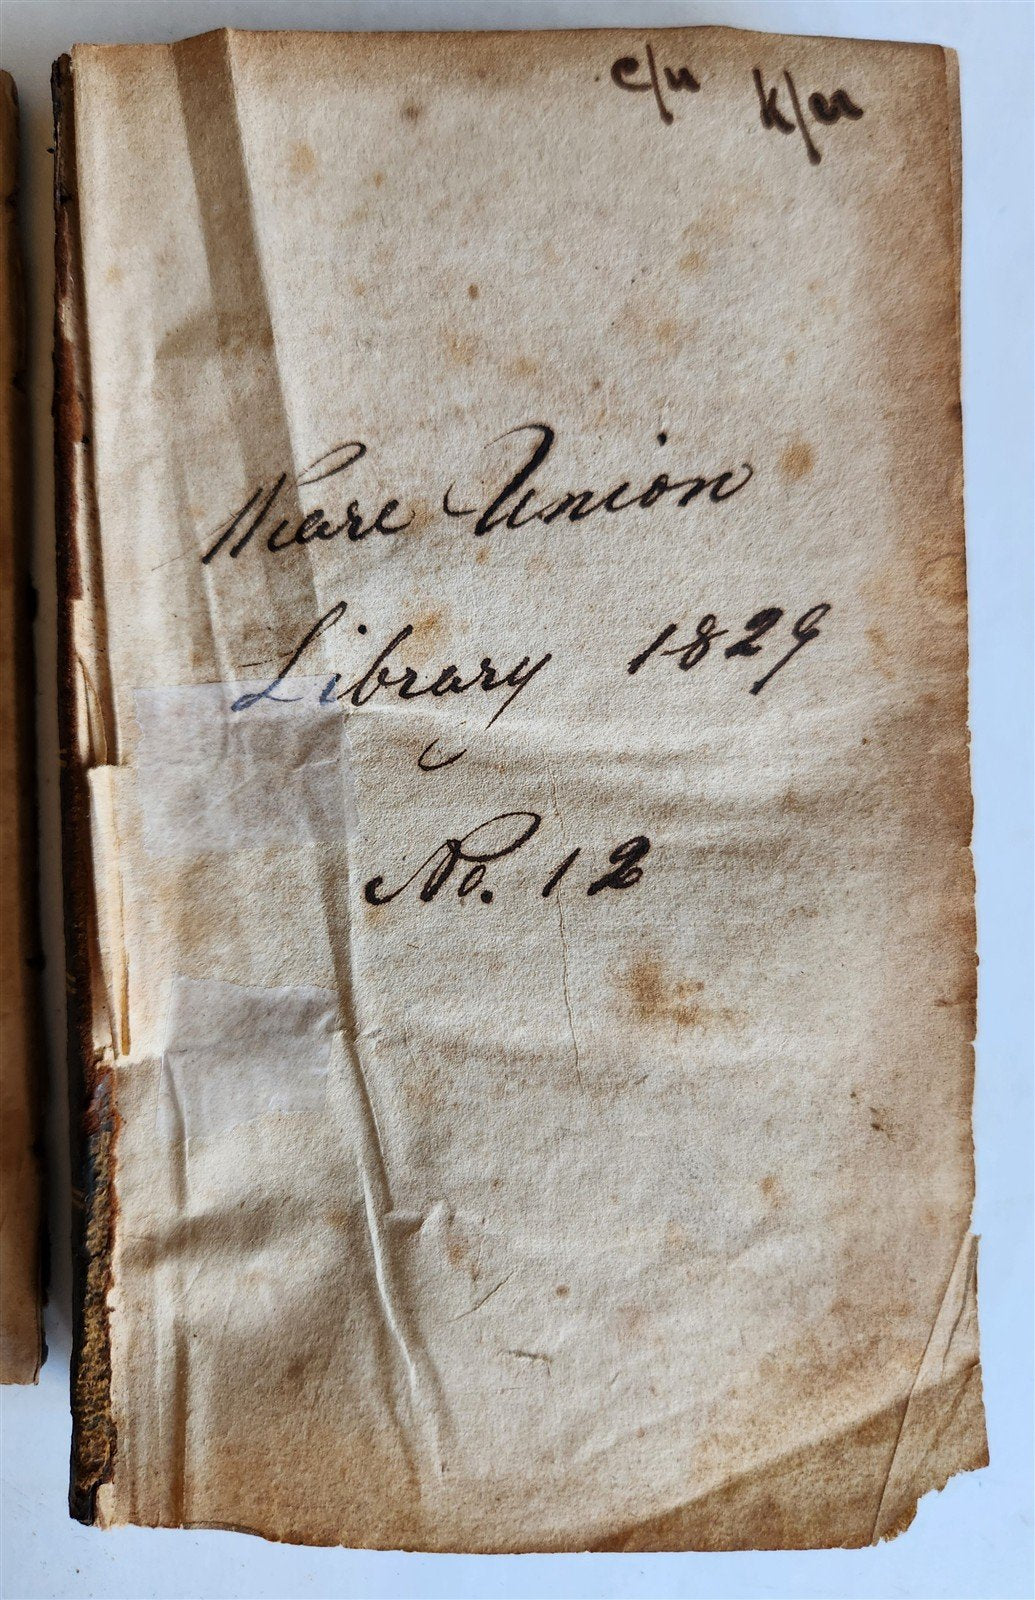 c/u k/m
Weare Union
Library 1829
No. 12